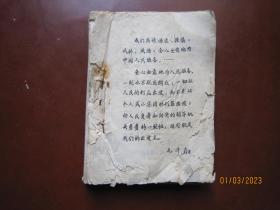 我们应该谦虚、谨慎、
戒骄、戒躁，全心全意地为
中国人民服务，……
全心全意地为人民服务，
一刻也不脱离群众；一切从
人民的利益出发，而不是从
个人或小集团的利益出发；
向人民负责和向党的领导机
关负责的一致性；这些就是
我们的出发点。
毛泽东
01/03/2023